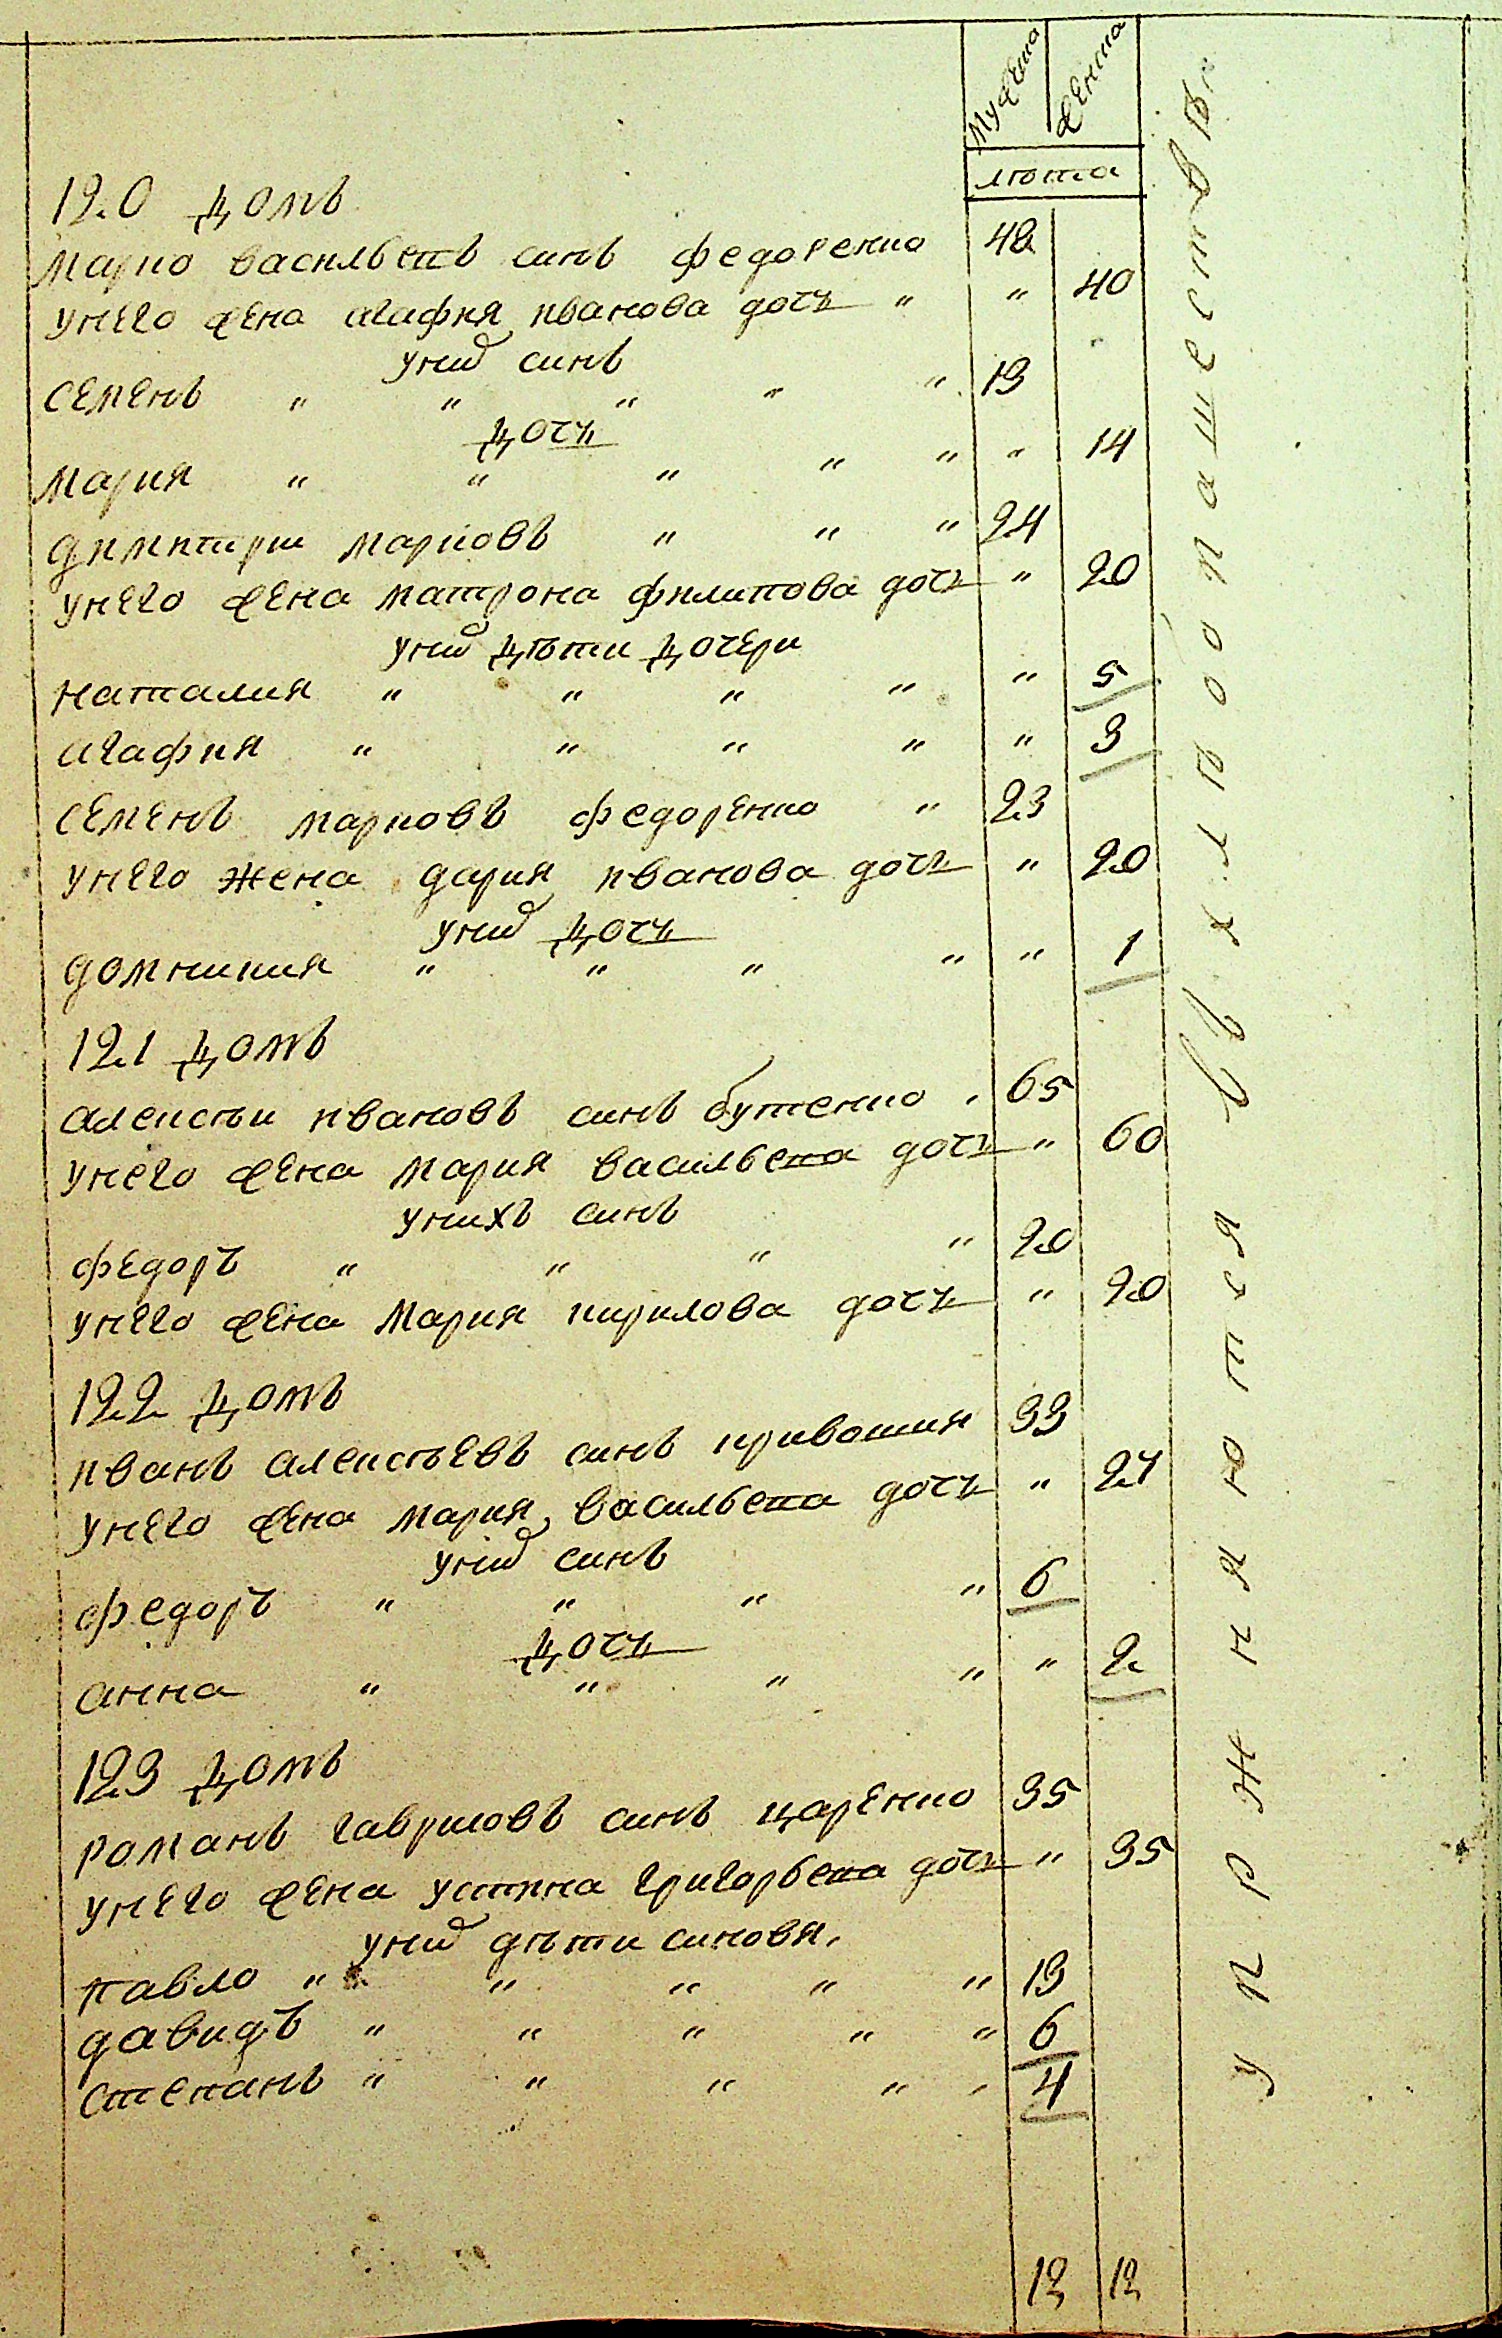 мужеска женска
лѣта
120 домъ
марко васильевъ синъ федоренко 42
унего жена агафия иванова дочъ " " 40
уних синъ
семенъ " " " " " 13
дочъ
мария " " " " " " 14
димитрии марковъ " " " 24
унего жена матрона филипова дочъ " 20
уних дѣти дочери
наталия " " " " " 5
агафия " " " " " 3
семенъ марковъ федоренко " 23
унего жена дария иванова дочъ " 20
уних дочъ
домникия " " " " " 1
121 домъ
алексѣи ивановъ синъ бутенко " 65
унего жена мария васильева дочъ " 60
унихъ синъ
федоръ " " " " 20
унего жена мария кирилова дочъ " 20
122 домъ
иванъ алексѣевъ синъ кривошия 33
унего жена мария васильева дочъ " 27
уних синъ
федоръ " " " " 6
дочъ
анна " " " " " 2
123 домъ
романъ гавриловъ синъ царенко 35
унего жена устина григорьева дочъ " 35
уних дѣти синовя.
павло " " " " " 13
давидъ " " " " " 6
степанъ " " " " " 4
12 12
упржняются въ хлѣбопашествѣ